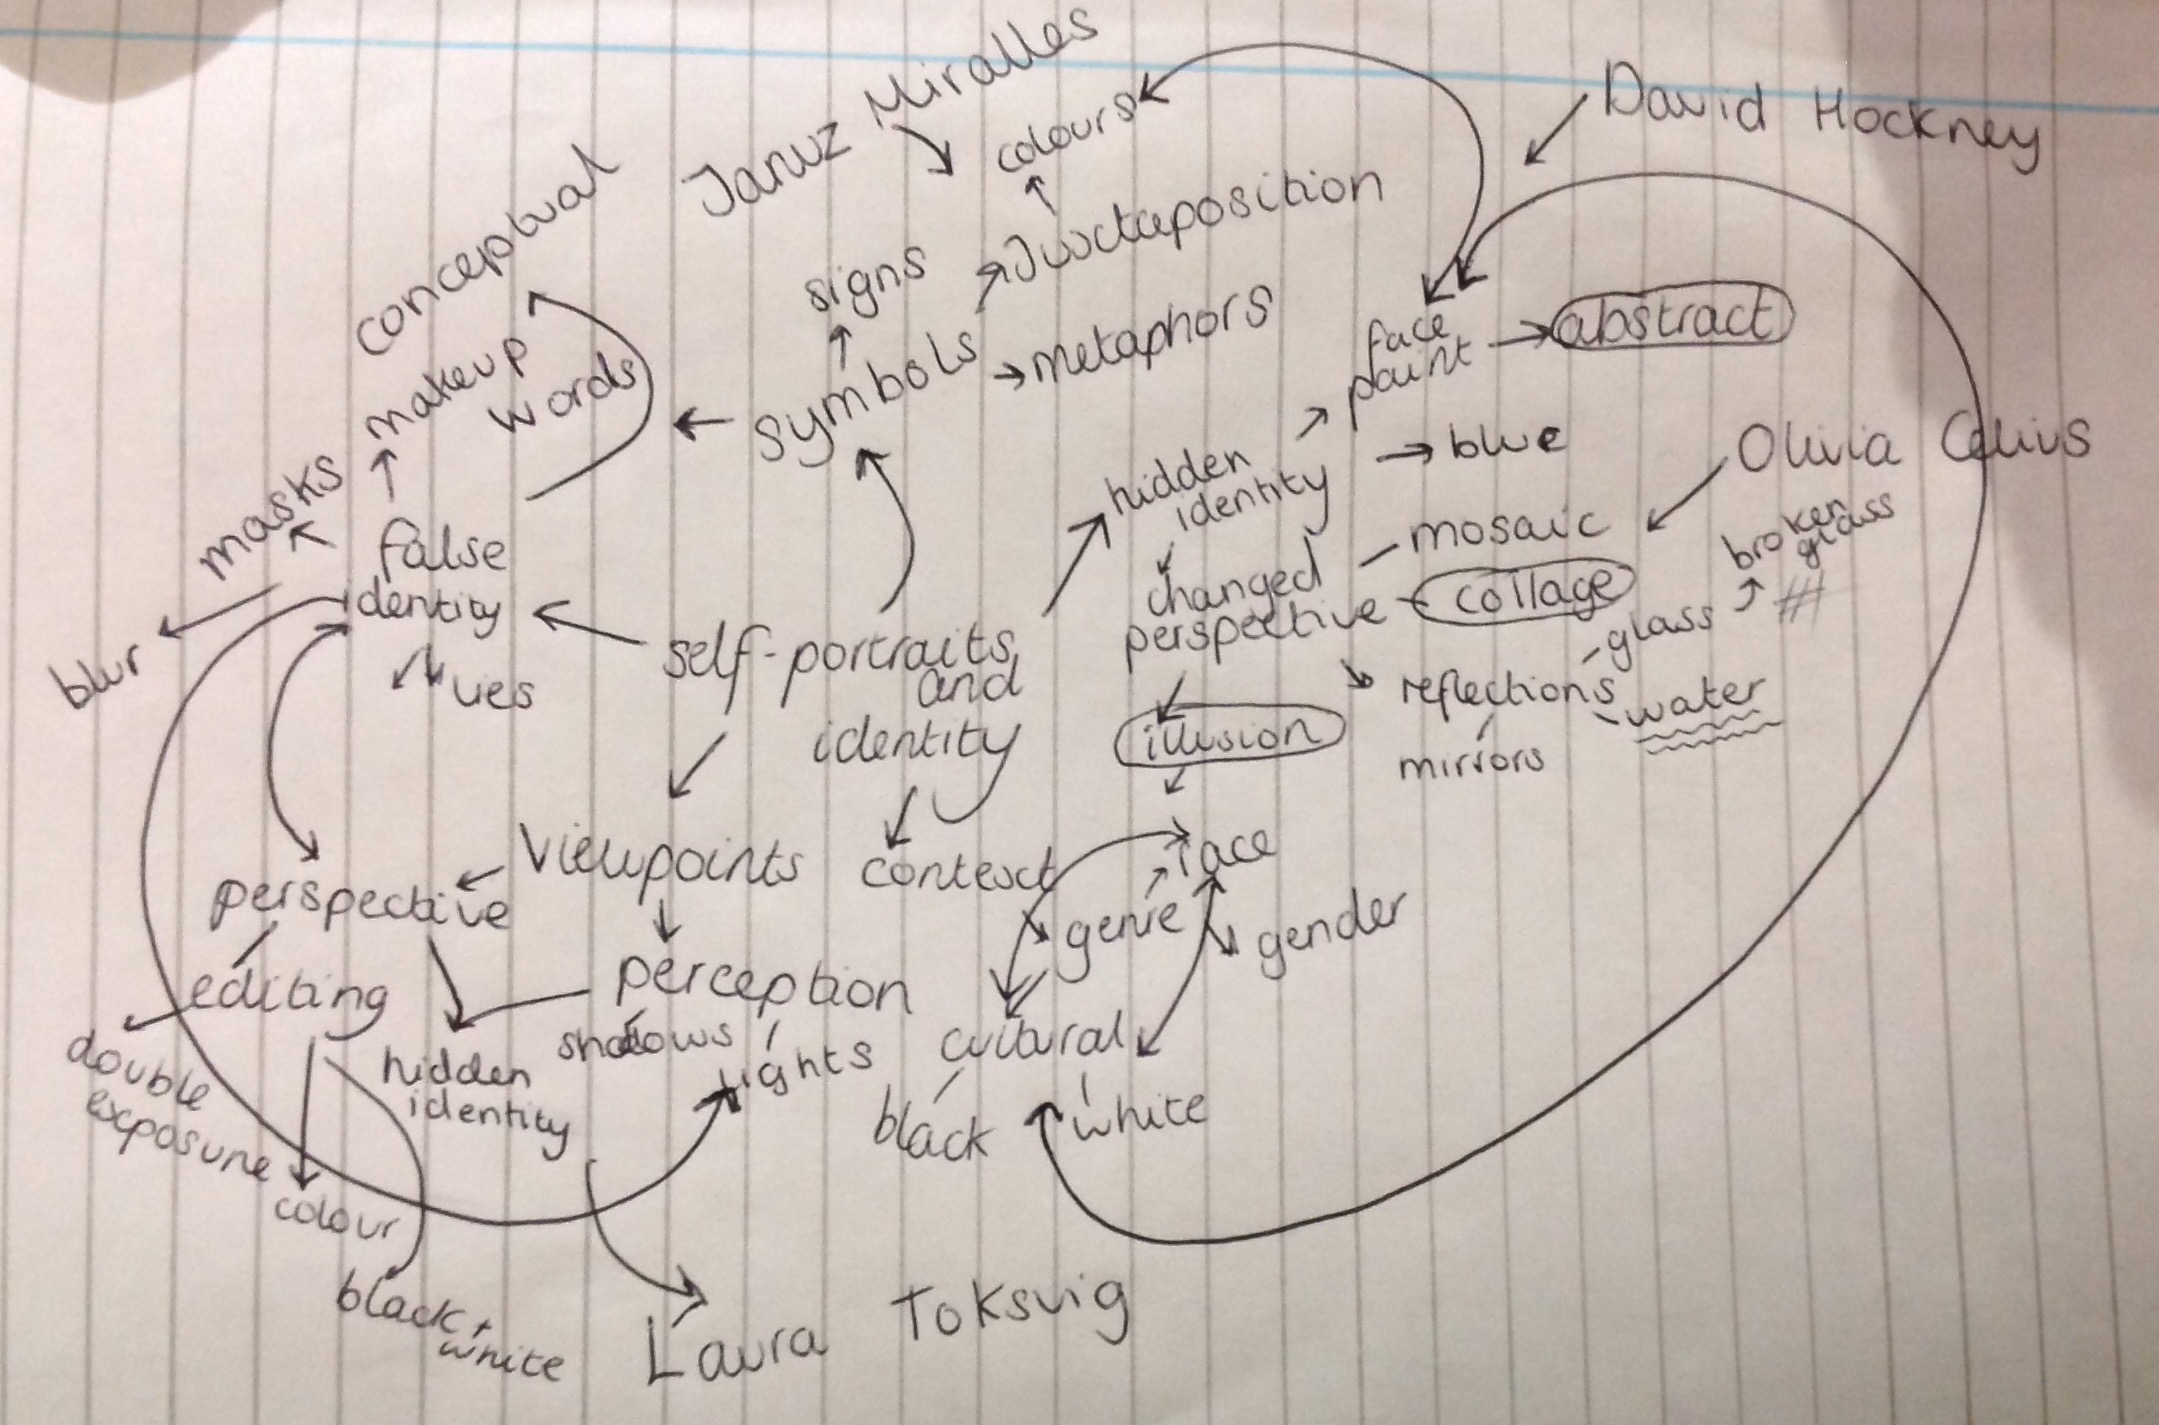 Januz Miralles
David Hockney
colours
conceptual
Juxtaposition
signs
metaphors
symbols
face
paint
abstract
makeup
words
blue
Olivia
hidden
identity
masks
mosaic
broken
glass
false
identity
changed
perspective
collage
glass
self-portraits
and
identity
lies
blur
reflections
water
illusion
mirrors
Viewpoints
context
race
perspective
genre
gender
editing
perception
shadows
lights
cultural
double
exposure
hidden
identity
black
white
colour
black +
white
Laura Toksvig